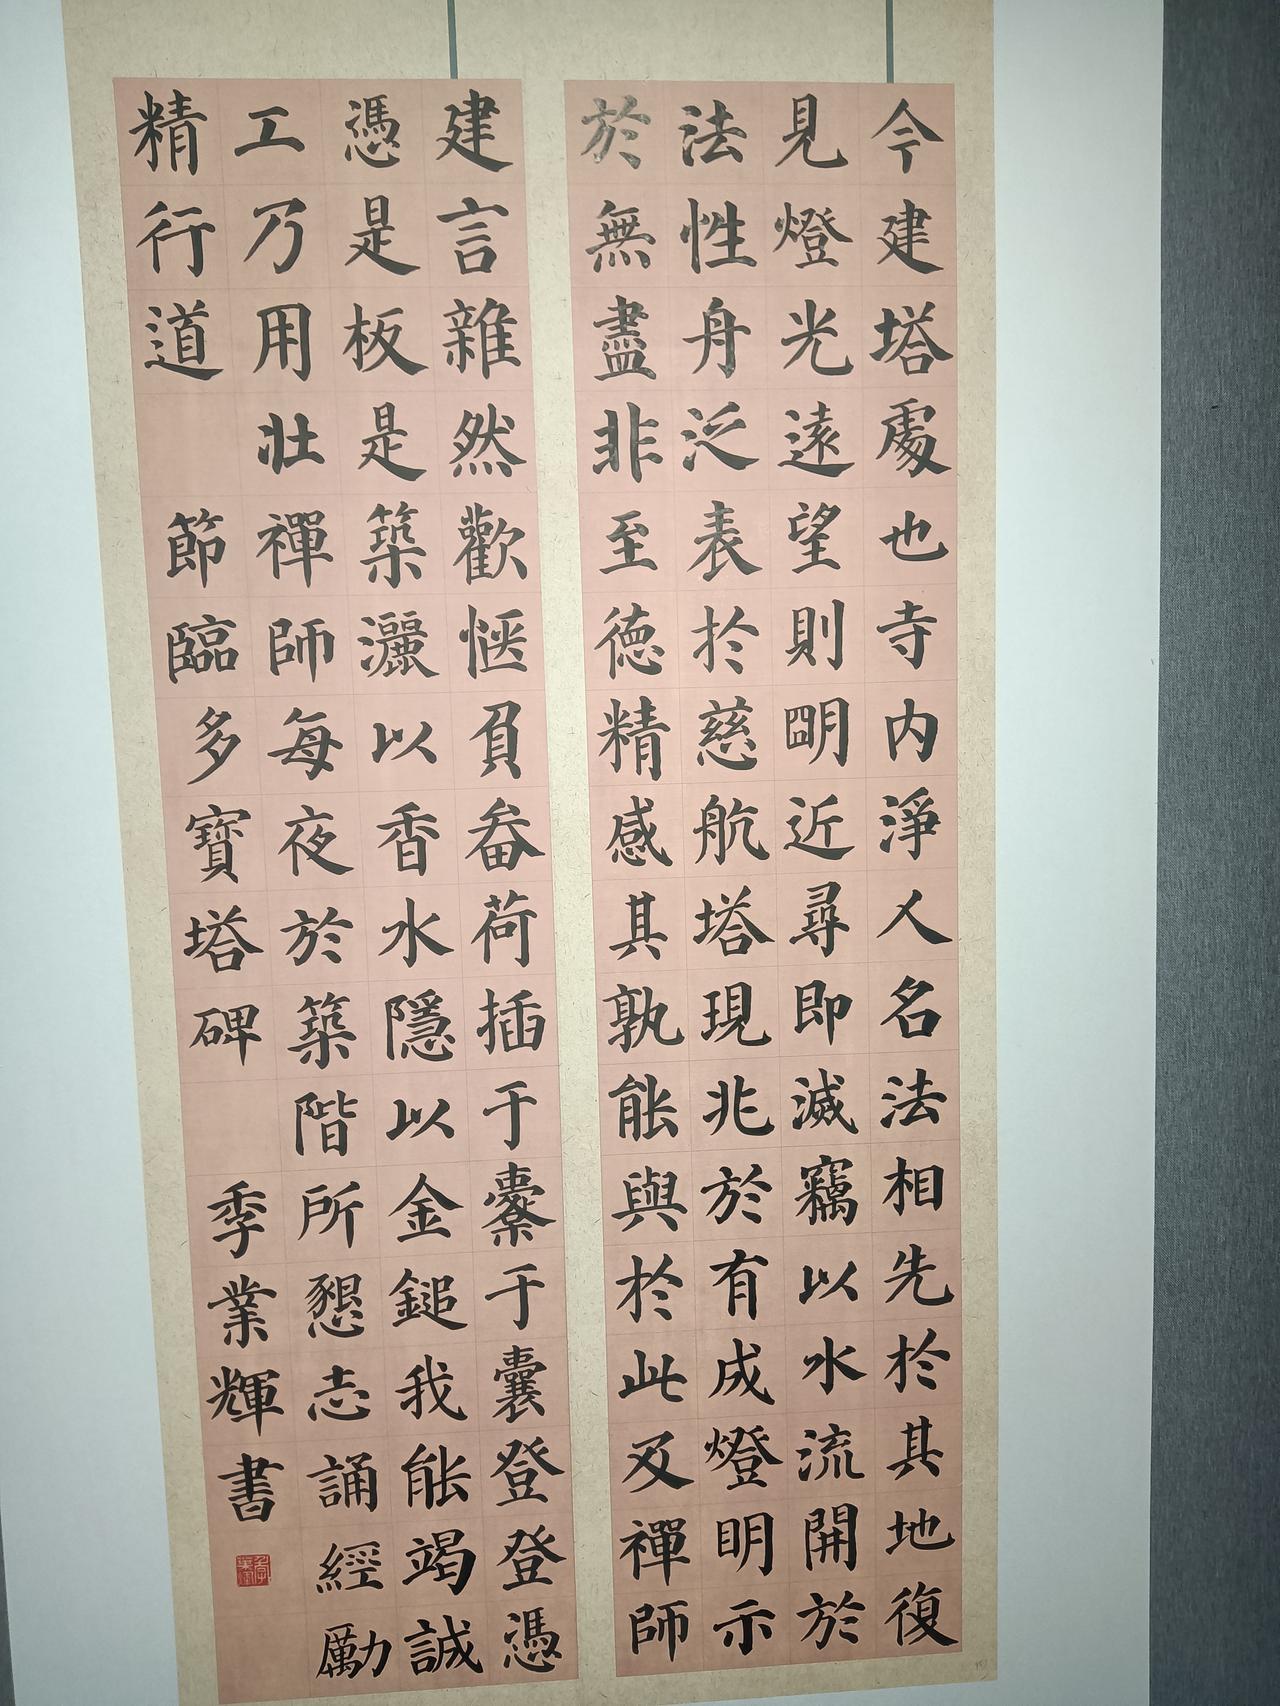 今建塔處也寺内淨人名法相先於其地復
見燈光遠望則明近尋即滅竊以水流開於
法性舟泛表於慈航塔現兆於有成燈明示
於無盡非至德精感其孰能與於此及禪師
建言雜然歡愜負畚荷插于橐于囊登登憑
憑是板是築灑以香水隱以金鎚我能竭誠
工乃用壯禪師每夜於築階所懇志誦經勵
精行道 節臨多寶塔碑 季業輝書